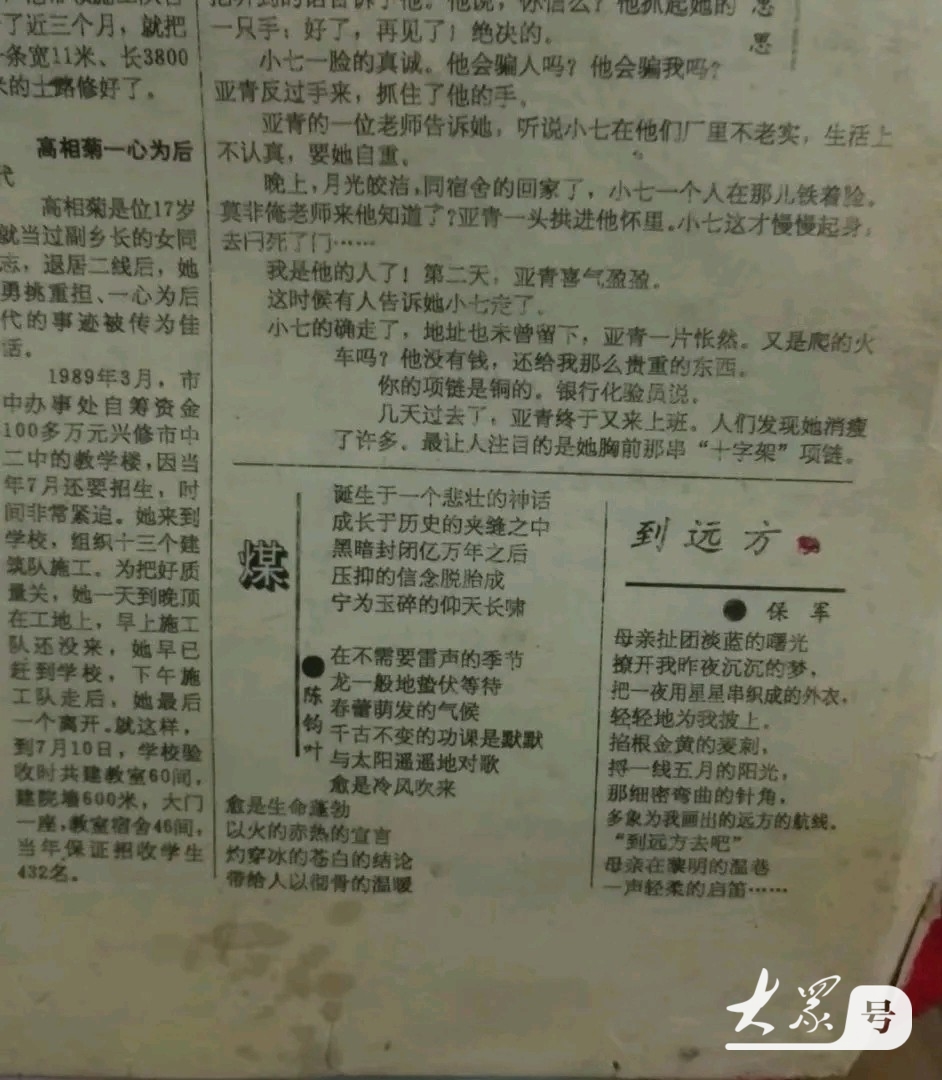 了近三个月，就把
一条宽11米、长3800
米的土路修好了。
高相菊一心为后
代
高相菊是位17岁
就当过副乡长的女同
志，退居二线后，她
勇挑重担、一心为后
代的事迹被传为佳
话。
1989年3月，市
中办事处自筹资金
100多万元兴修市中
二中的教学楼，因当
年7月还要招生，时
间非常紧迫。她来到
学校，组织十三个建
筑队施工。为把好质
量关，她一天到晚顶
在工地上，早上施工
队还没来，她早已
赶到学校，下午施
工队走后，她最后
一个离开。就这样，
到7月10日，学校验
收时共建教室60间，
建院墙600米，大门
一座，教室宿舍46间，
当年保证招收学生
432名。
的话告诉了他。他说，你信么？他抓起她的
一只手；好了，再见了！绝决的。
思
思
小七一脸的真诚。他会骗人吗？他会骗我吗？
亚青反过手来，抓住了他的手。
亚青的一位老师告诉她，听说小七在他们厂里不老实，生活上
不认真，要她自重。
晚上，月光皎洁，同宿舍的回家了，小七一个人在那儿铁着脸。
莫非俺老师来他知道了？亚青一头拱进他怀里。小七这才慢慢起身，
去闩死了门……
我是他的人了！第二天，亚青喜气盈盈。
这时候有人告诉她小七走了。
小七的确走了，地址也未曾留下，亚青一片怅然。又是爬的火
车吗？他没有钱，还给我那么贵重的东西。
你的项链是铜的。银行化验员说。
几天过去了，亚青终于又来上班。人们发现她消瘦
了许多。最让人注目的是她胸前那串“十字架”项链。
煤
●陈钧叶
诞生于一个悲壮的神话
成长于历史的夹缝之中
黑暗封闭亿万年之后
压抑的信念脱胎成
宁为玉碎的仰天长啸
在不需要雷声的季节
龙一般地蛰伏等待
春蕾萌发的气候
千古不变的功课是默默
与太阳遥遥地对歌
愈是冷风吹来
愈是生命蓬勃
以火的赤热的宣言
灼穿冰的苍白的结论
带给人以彻骨的温暖
到远方
●保军
母亲扯团淡蓝的曙光
撩开我昨夜沉沉的梦，
把一夜用星星串织成的外衣，
轻轻地为我披上。
掐根金黄的麦刺，
捋一线五月的阳光，
那细密弯曲的针角，
多象为我画出的远方的航线。
“到远方去吧”
母亲在黎明的温巷
一声轻柔的启笛……
大众号